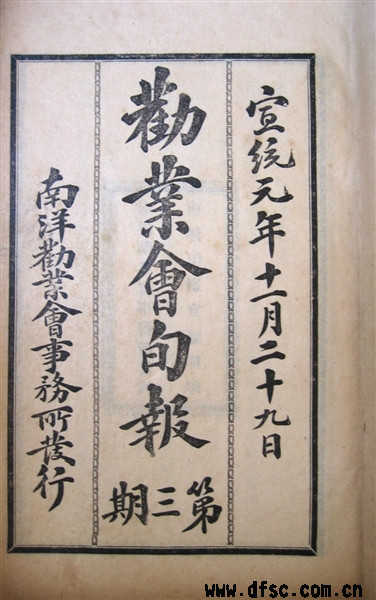 宣統元年十一月二十九日
勸業會旬報
第三期
南洋勸業會事務所發行
www.dfsc.com.cn